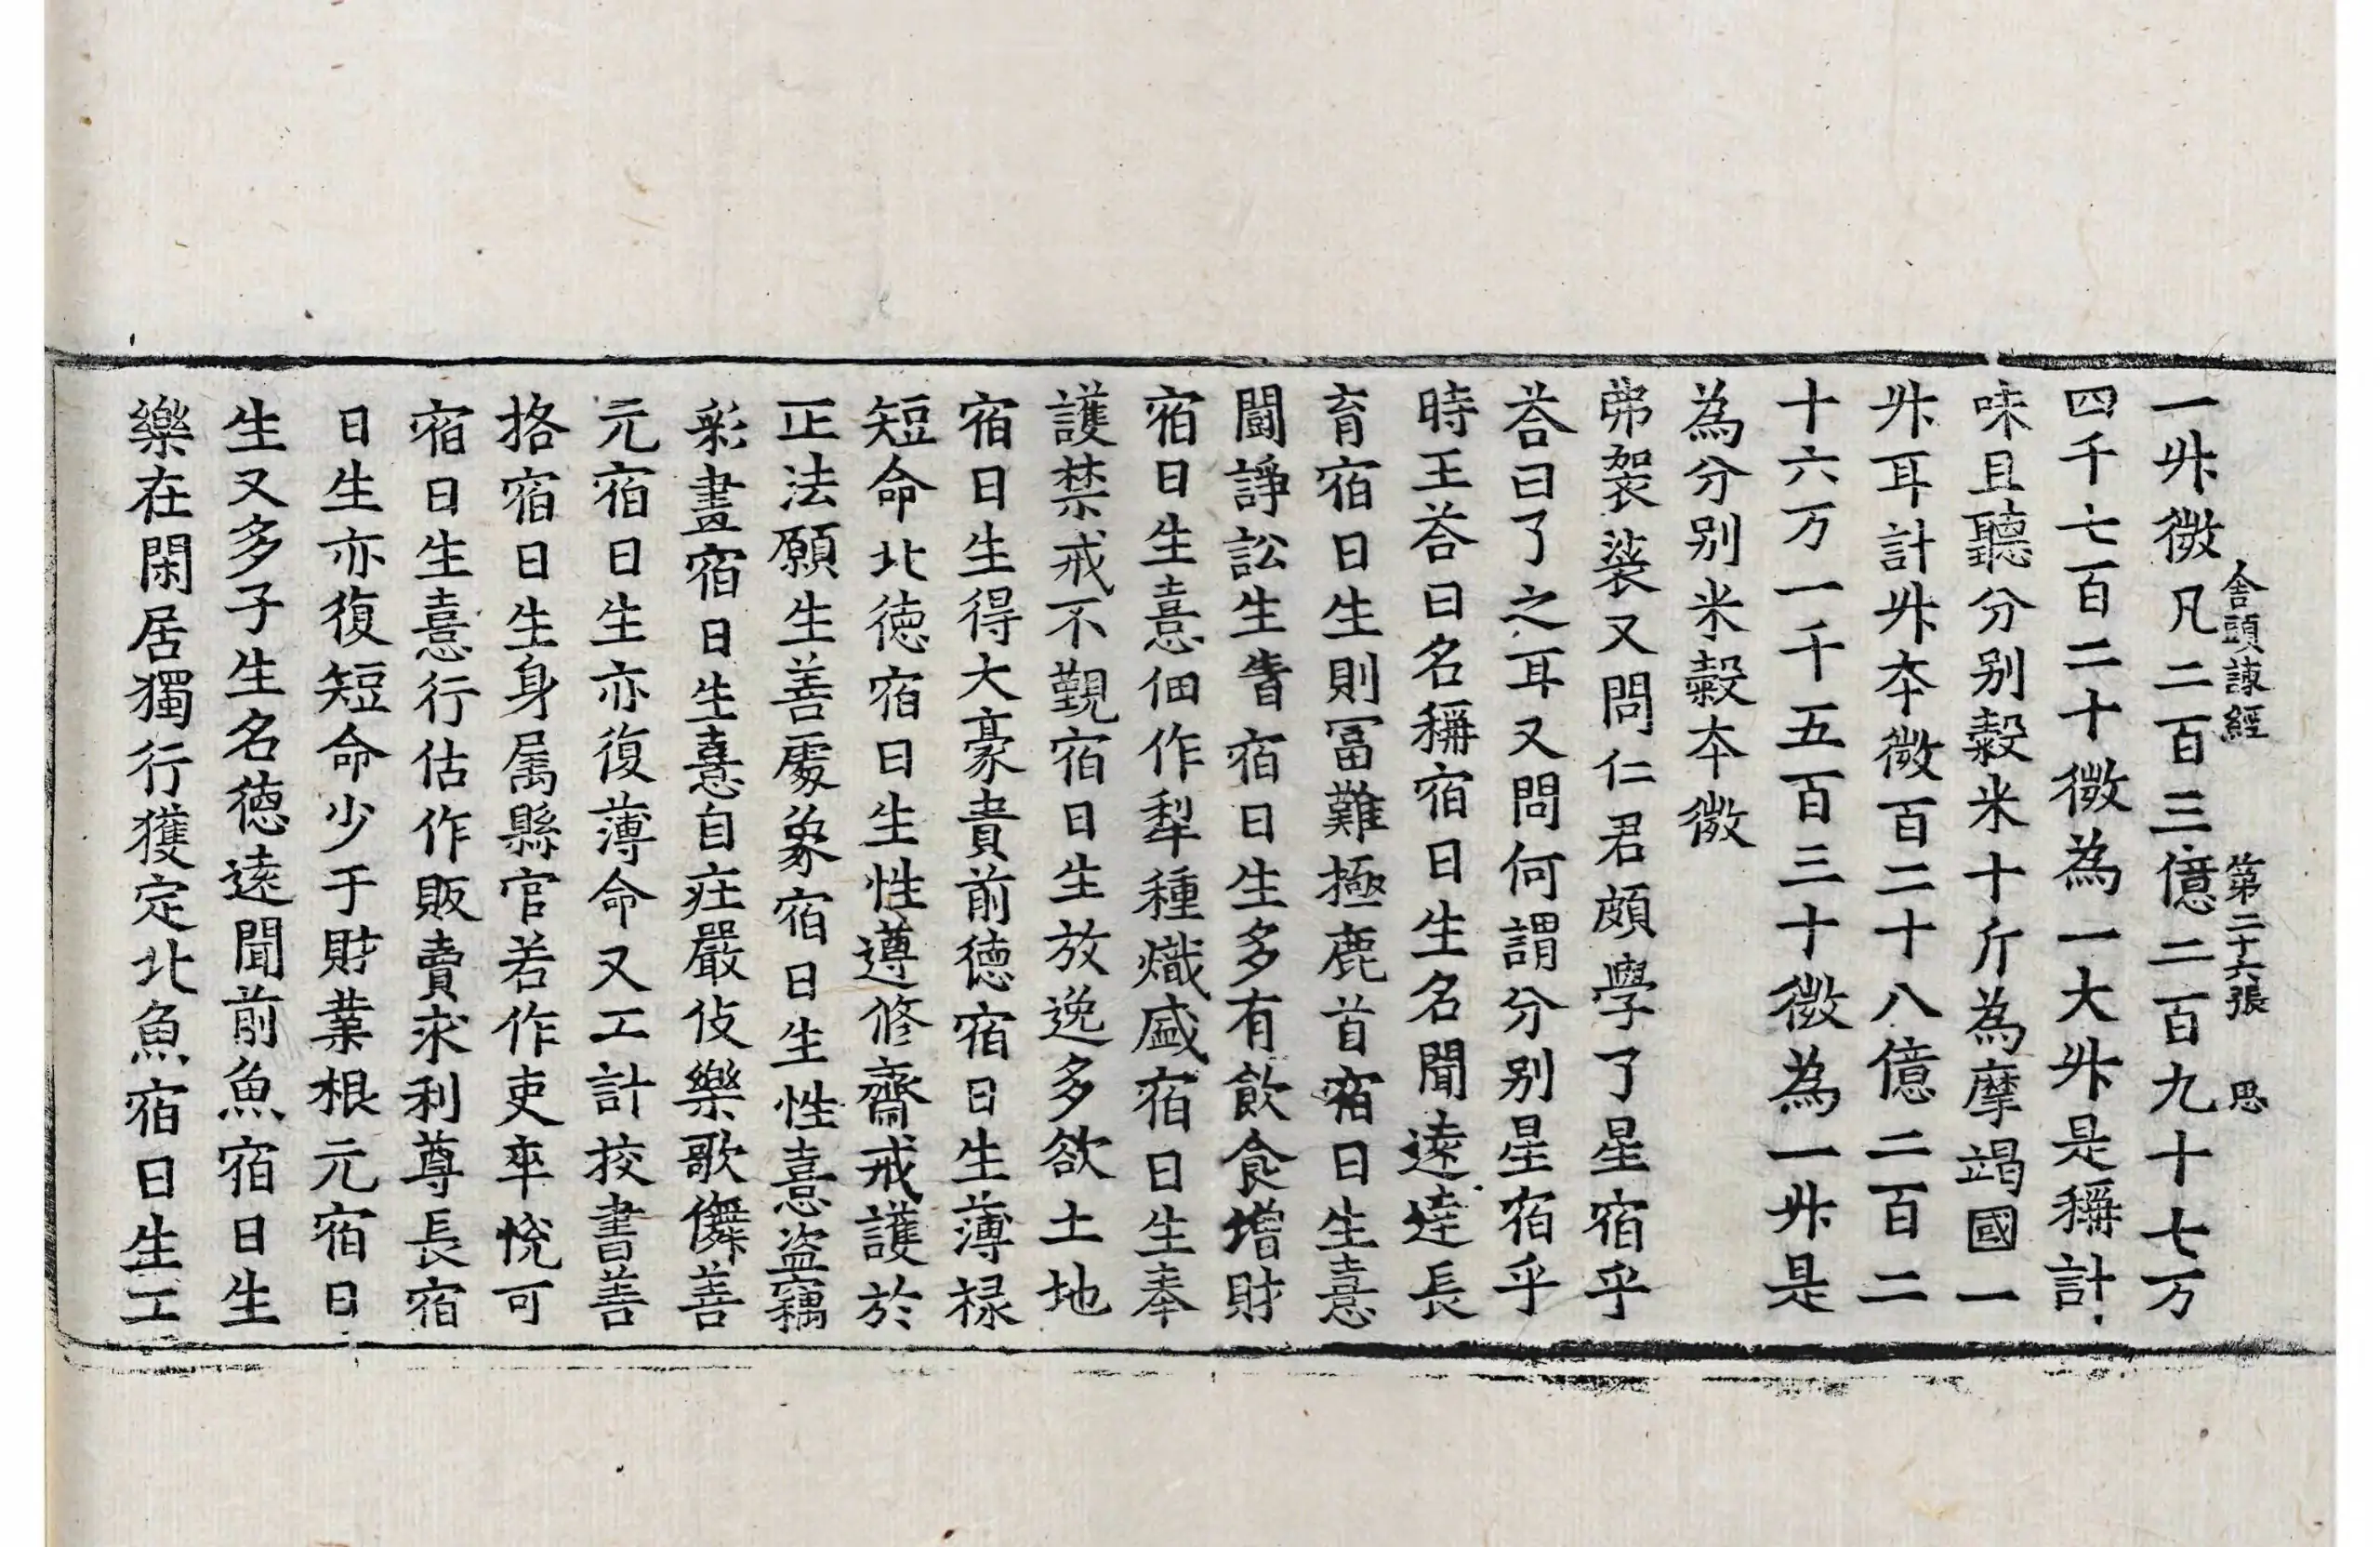 舎頭諫經　第二十六張　思
一𣂏微凡二百三億二百九十七万
四千七百二十微為一大𣂏是稱計
味且聽分别穀米十斤為摩竭國一
𣂏耳計𣂏夲微百二十八億二百二
十六万一千五百三十微為一𣂏是
為分别米穀夲微
弗袈裟又問仁君頗學了星宿乎
荅曰了之耳又問何謂分别星宿乎
時王荅曰名稱宿日生名聞遠達長
育宿日生則冨難極鹿首宿日生憙
鬪諍訟生眚宿日生多有飲食增財
宿日生憙佃作犁種熾盛宿日生奉
護禁戒不覲宿日生放逸多欲土地
宿日生得大豪貴前徳宿日生薄禄
短命北徳宿日生性遵修齋戒護於
正法願生善處象宿日生性憙盗竊
彩畫宿日生憙自莊嚴伎樂歌儛善
元宿日生亦復薄命又工計挍書善
挌宿日生身屬縣官若作吏卒悅可
宿日生憙行估作販賣求利尊長宿
日生亦復短命少于財業根元宿日
生又多子生名徳遠聞前魚宿日生
樂在閑居獨行獲定北魚宿日生工